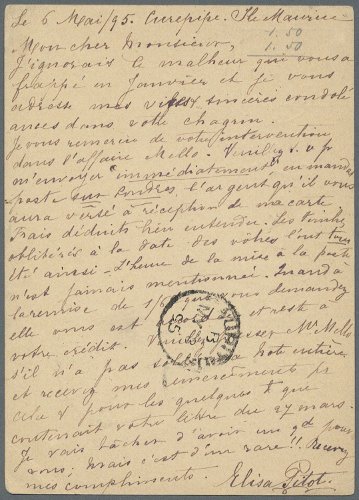 Le 6 Mai/95. Curepipe. Ile Maurice
1.50
1.50
Mon cher Monsieur,
J'ignorais le malheur qui vous a
frappé en Janvier et je vous
adresse mes vives sincères condolé
ances dans votre chagrin.
Je vous remercie de votre intervention
dans l'affaire Mello. Veuillez s. v. p
m'envoyer immédiatement en mandat
poste sur Londres, l'argent qu'il vous
aura versé à réception de ma carte
Frais déduits bien entendu. Les timbres
oblitérés à la date des vôtres l'ont tous
été ainsi - L'heure de la mise à la poste
n'est jamais mentionnée. Quand à
la remise de 1/ que vous demandez
elle vous est et reste à
votre crédit. Veuillez Mr Mello
s'il n'a pas soldé sa note entière
et recevez mes remerciements pr
cela & pour les quelques t. que
contenait votre lettre du 27 mars.
Je vais tâcher d'avoir un gd pour
vous, mais c'est d'un rare!! Recevez
mes compliments. Elisa Pitot.
MAURITIUS
MA
95